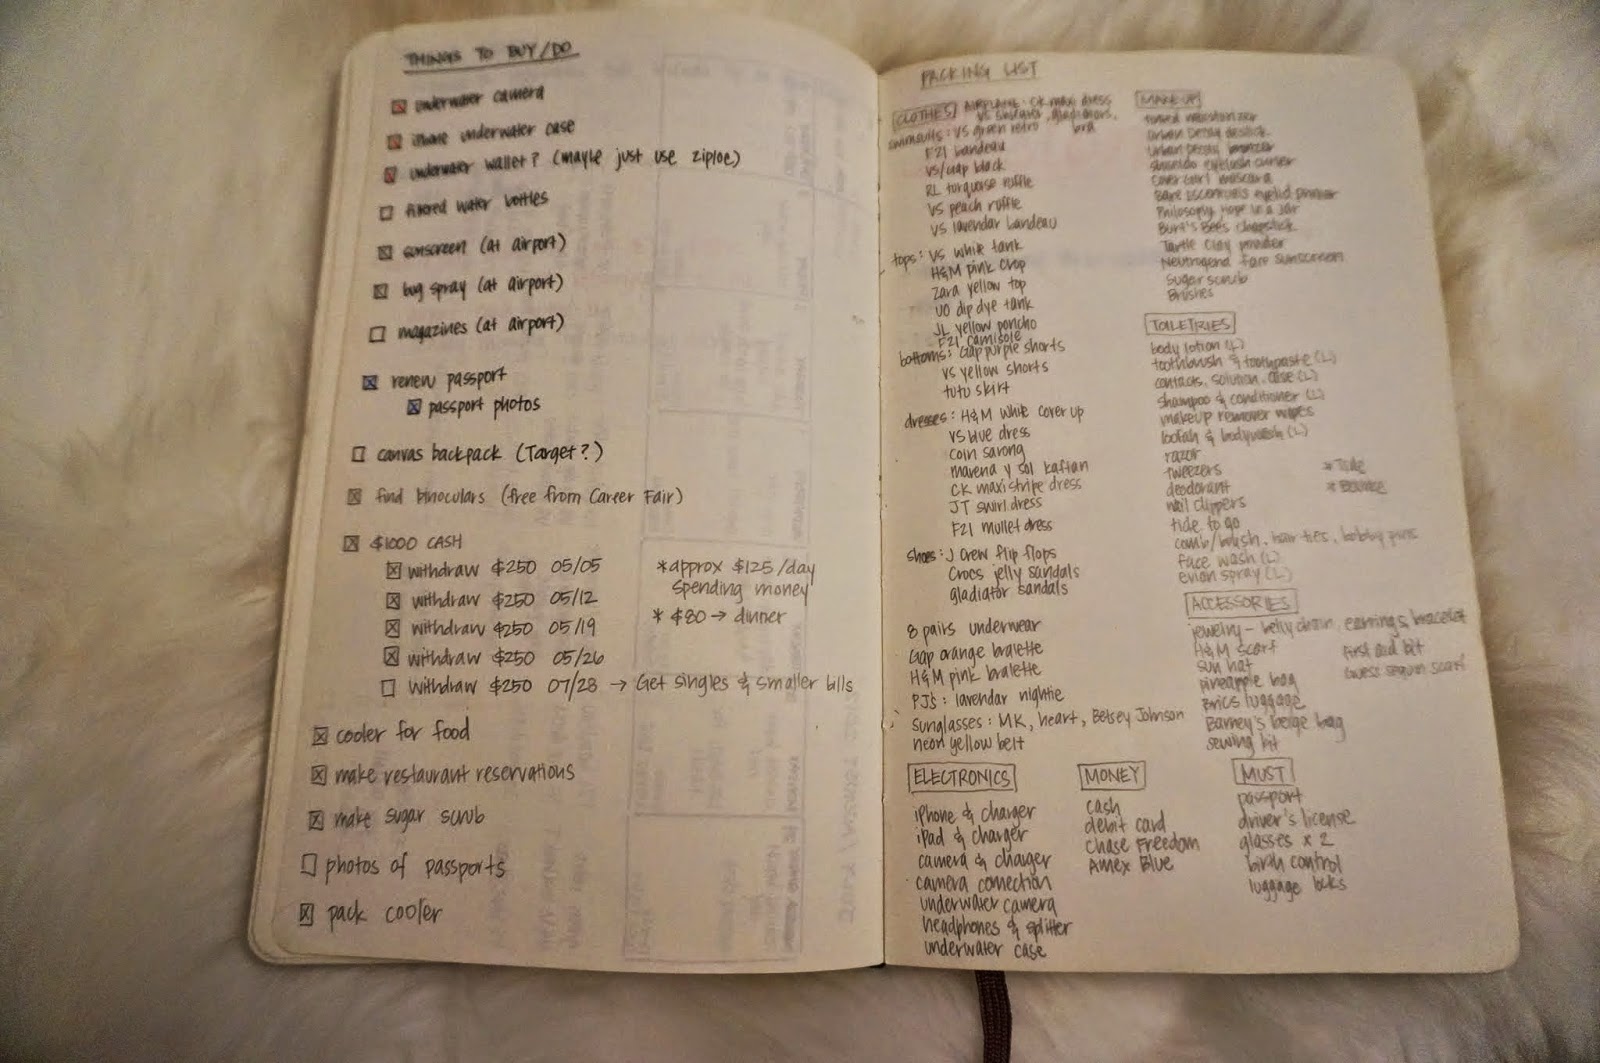 THINGS TO BUY/DO
underwater camera
iphone underwater case
underwater wallet? (maybe just use ziploc)
filtered water bottles
sunscreen (at airport)
bug spray (at airport)
magazines (at airport)
renew passport
passport photos
canvas backpack (Target?)
find binoculars (free from Career Fair)
$1000 CASH
withdraw $250 05/05
withdraw $250 05/12
withdraw $250 05/19
withdraw $250 05/26
withdraw $250 07/28 → Get singles & smaller bills
*approx $125/day
spending money
* $80 → dinner
cooler for food
make restaurant reservations
make sugar scrub
photos of passports
pack cooler
PACKING LIST
CLOTHES AIRPLANE: CK maxi dress
VS sweater, gladiators,
bra
swimsuits: VS green retro
F21 bandeau
VS/Gap black
RL turquoise ruffle
VS peach ruffle
VS lavendar bandeau
tops: VS white tank
H&M pink crop
Zara yellow top
UO dip dye tank
JL yellow poncho
F21 camisole
bottoms: Gap purple shorts
VS yellow shorts
tutu skirt
dresses: H&M white cover up
VS blue dress
coin sarong
marena y sol kaftan
CK maxi stripe dress
JT swirl dress
F21 mullet dress
shoes: J Crew flip flops
Crocs jelly sandals
gladiator sandals
8 pairs underwear
Gap orange bralette
H&M pink bralette
PJs: lavendar nightie
sunglasses: MK, heart, Betsey Johnson
neon yellow belt
ELECTRONICS
iPhone & charger
iPad & charger
camera & charger
camera connection
underwater camera
headphones & splitter
underwater case
MONEY
cash
debit card
Chase Freedom
Amex Blue
MAKEUP
tinted moisturizer
Urban Decay
Urban Decay bronzer
shiseido eyelash curler
Cover Girl mascara
Bare Escentuals eyelid primer
Philosophy Hope in a Jar
Burt's Bees chapstick
Tarte Clay powder
Neutrogena face sunscreen
sugar scrub
Brushes
TOILETRIES
body lotion (L)
toothbrush & toothpaste (L)
contacts, solution, case (L)
shampoo & conditioner (L)
makeup remover wipes
loofah & bodywash (L)
razor
tweezers
deodorant
nail clippers
tide to go
comb/brush, hair ties, bobby pins
face wash (L)
evian spray (L)
* Tide
* Bounce
ACCESSORIES
jewelry - belly chain, earrings, bracelet
H&M scarf
sun hat
pineapple bag
Brics luggage
Barney's beige bag
sewing kit
first aid kit
Guess sequin scarf
MUST
passport
driver's license
glasses x 2
birth control
luggage locks